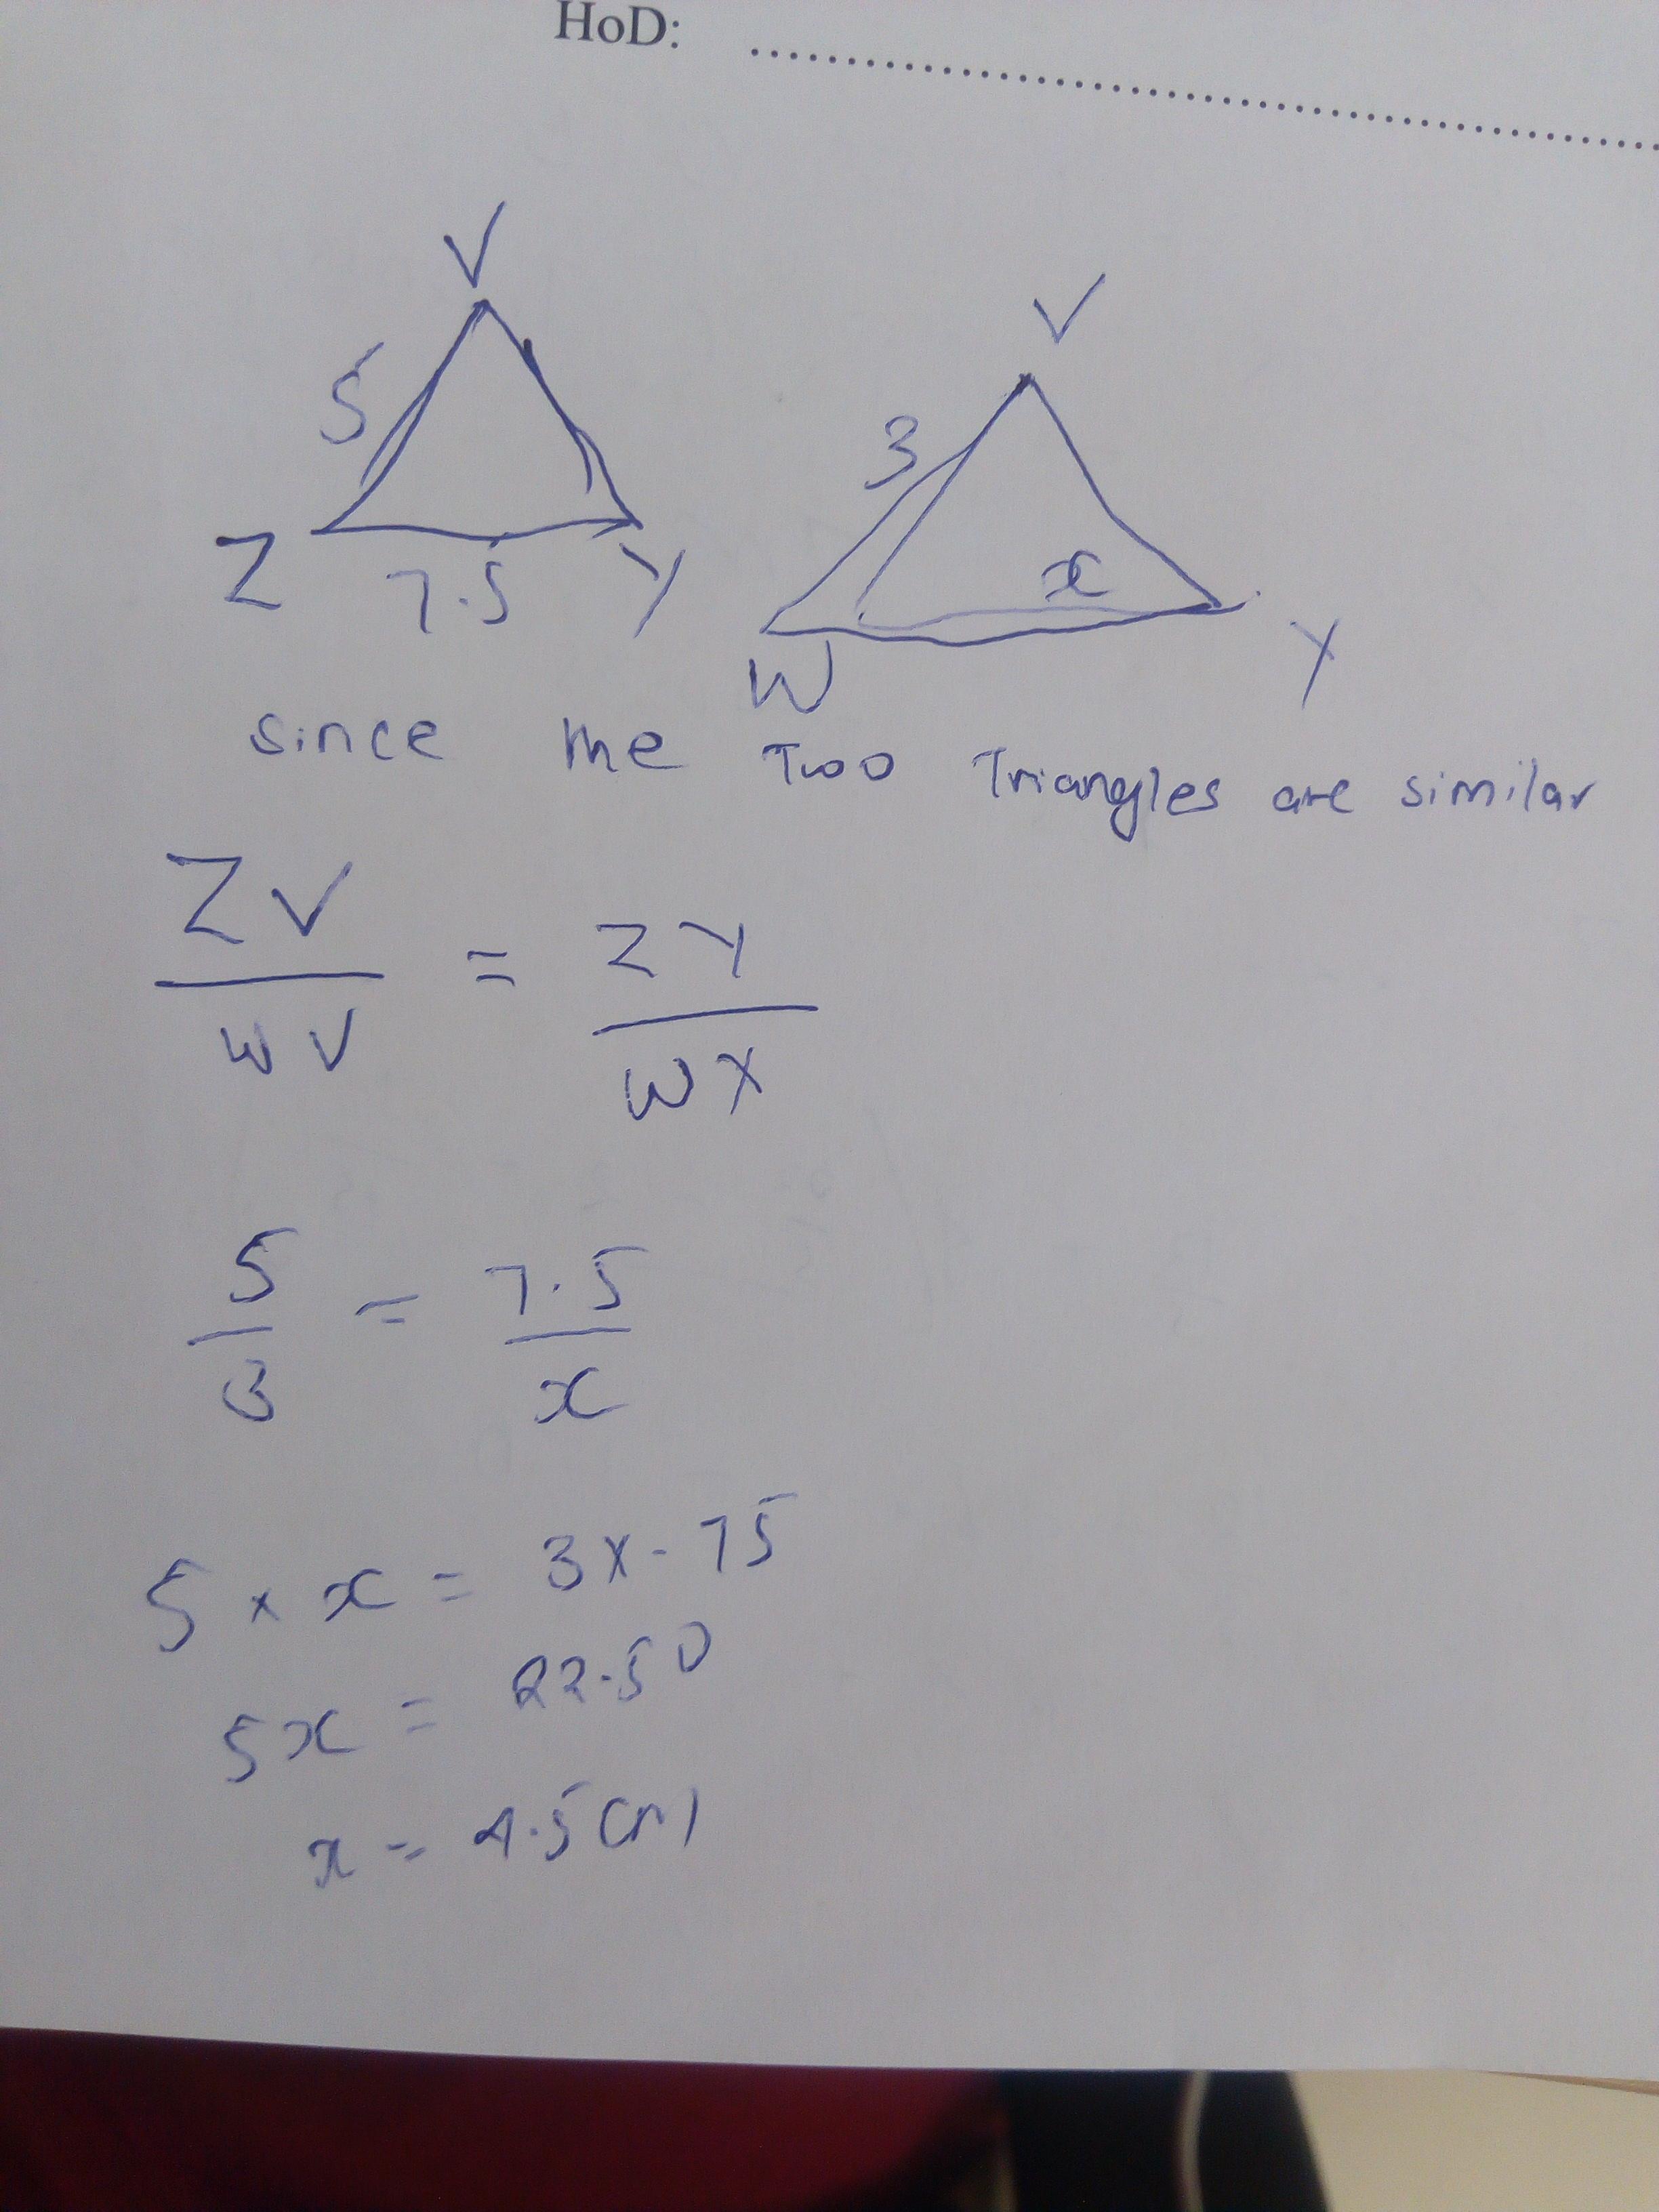 HoD: ..........................................
V
5
Z 7.5 Y
V
3
x
W
Y
since the Two Triangles are similar
ZV = ZY
WV WX
5 = 7.5
3 x
5 × x = 3x-75
5x = 22.50
x = 4.5cm